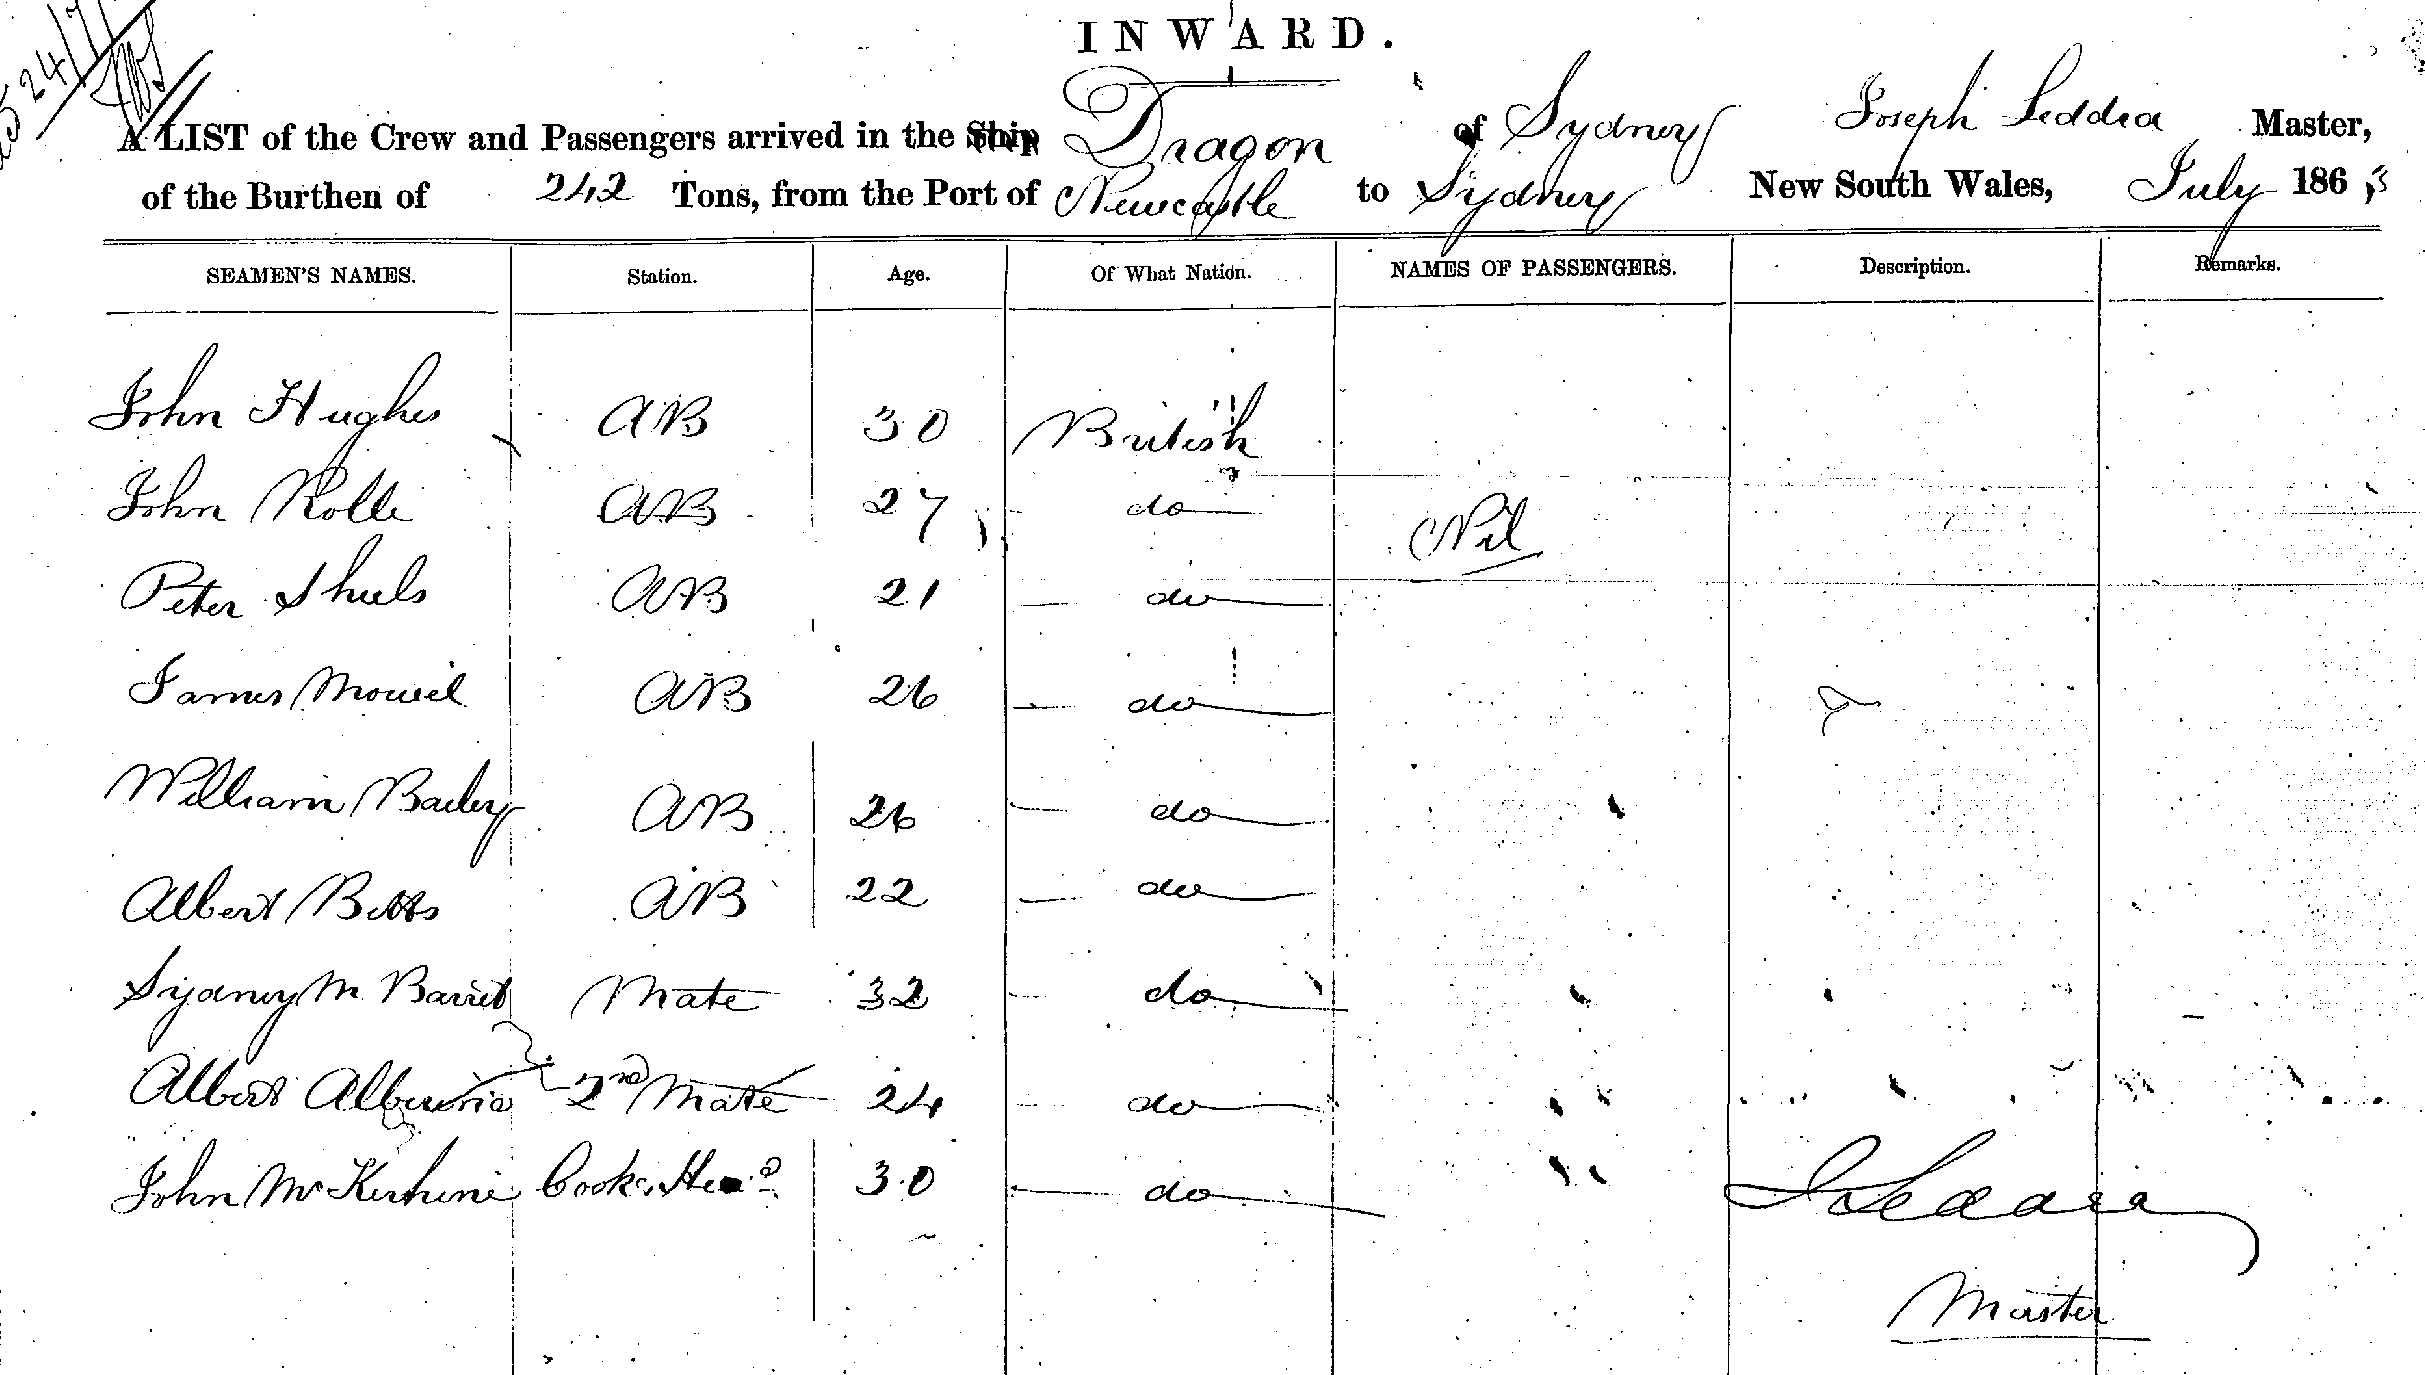 INWARD.
A LIST of the Crew and Passengers arrived in the Ship Dragon of Sydney Joseph Seddra Master,
of the Burthen of 242 Tons, from the Port of Newcastle to Sydney New South Wales, July 186
SEAMEN'S NAMES. Station. Age. Of What Nation. NAMES OF PASSENGERS. Description. Remarks.
John Hughes AB 30 British
John Rolle AB 27 do Nil
Peter AB 21 do
James AB 26 do
William Bailey AB 26 do
Albert Betts AB 22 do
Sydney M Barret Mate 32 do
Albert 2nd Mate 24 do
John Cook 30 do
Master